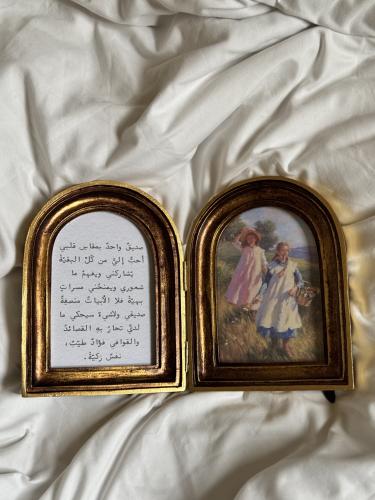 صديقٌ واحدٌ بمقاس قلبي
أحبُّ إليَّ من كُلِّ البقيَّةْ
يشاركني ويفهمُ ما
شعوري ويمنحُني مسراتٍ
بهيَّةْ فلا الأبياتُ منصفةٌ
صديقي ولاشيءٌ سيحكي ما
لديَّ تحارُ بهِ القصائدُ
والقوافي فؤادٌ طيّبٌ،
نفسٌ زكيّةْ.